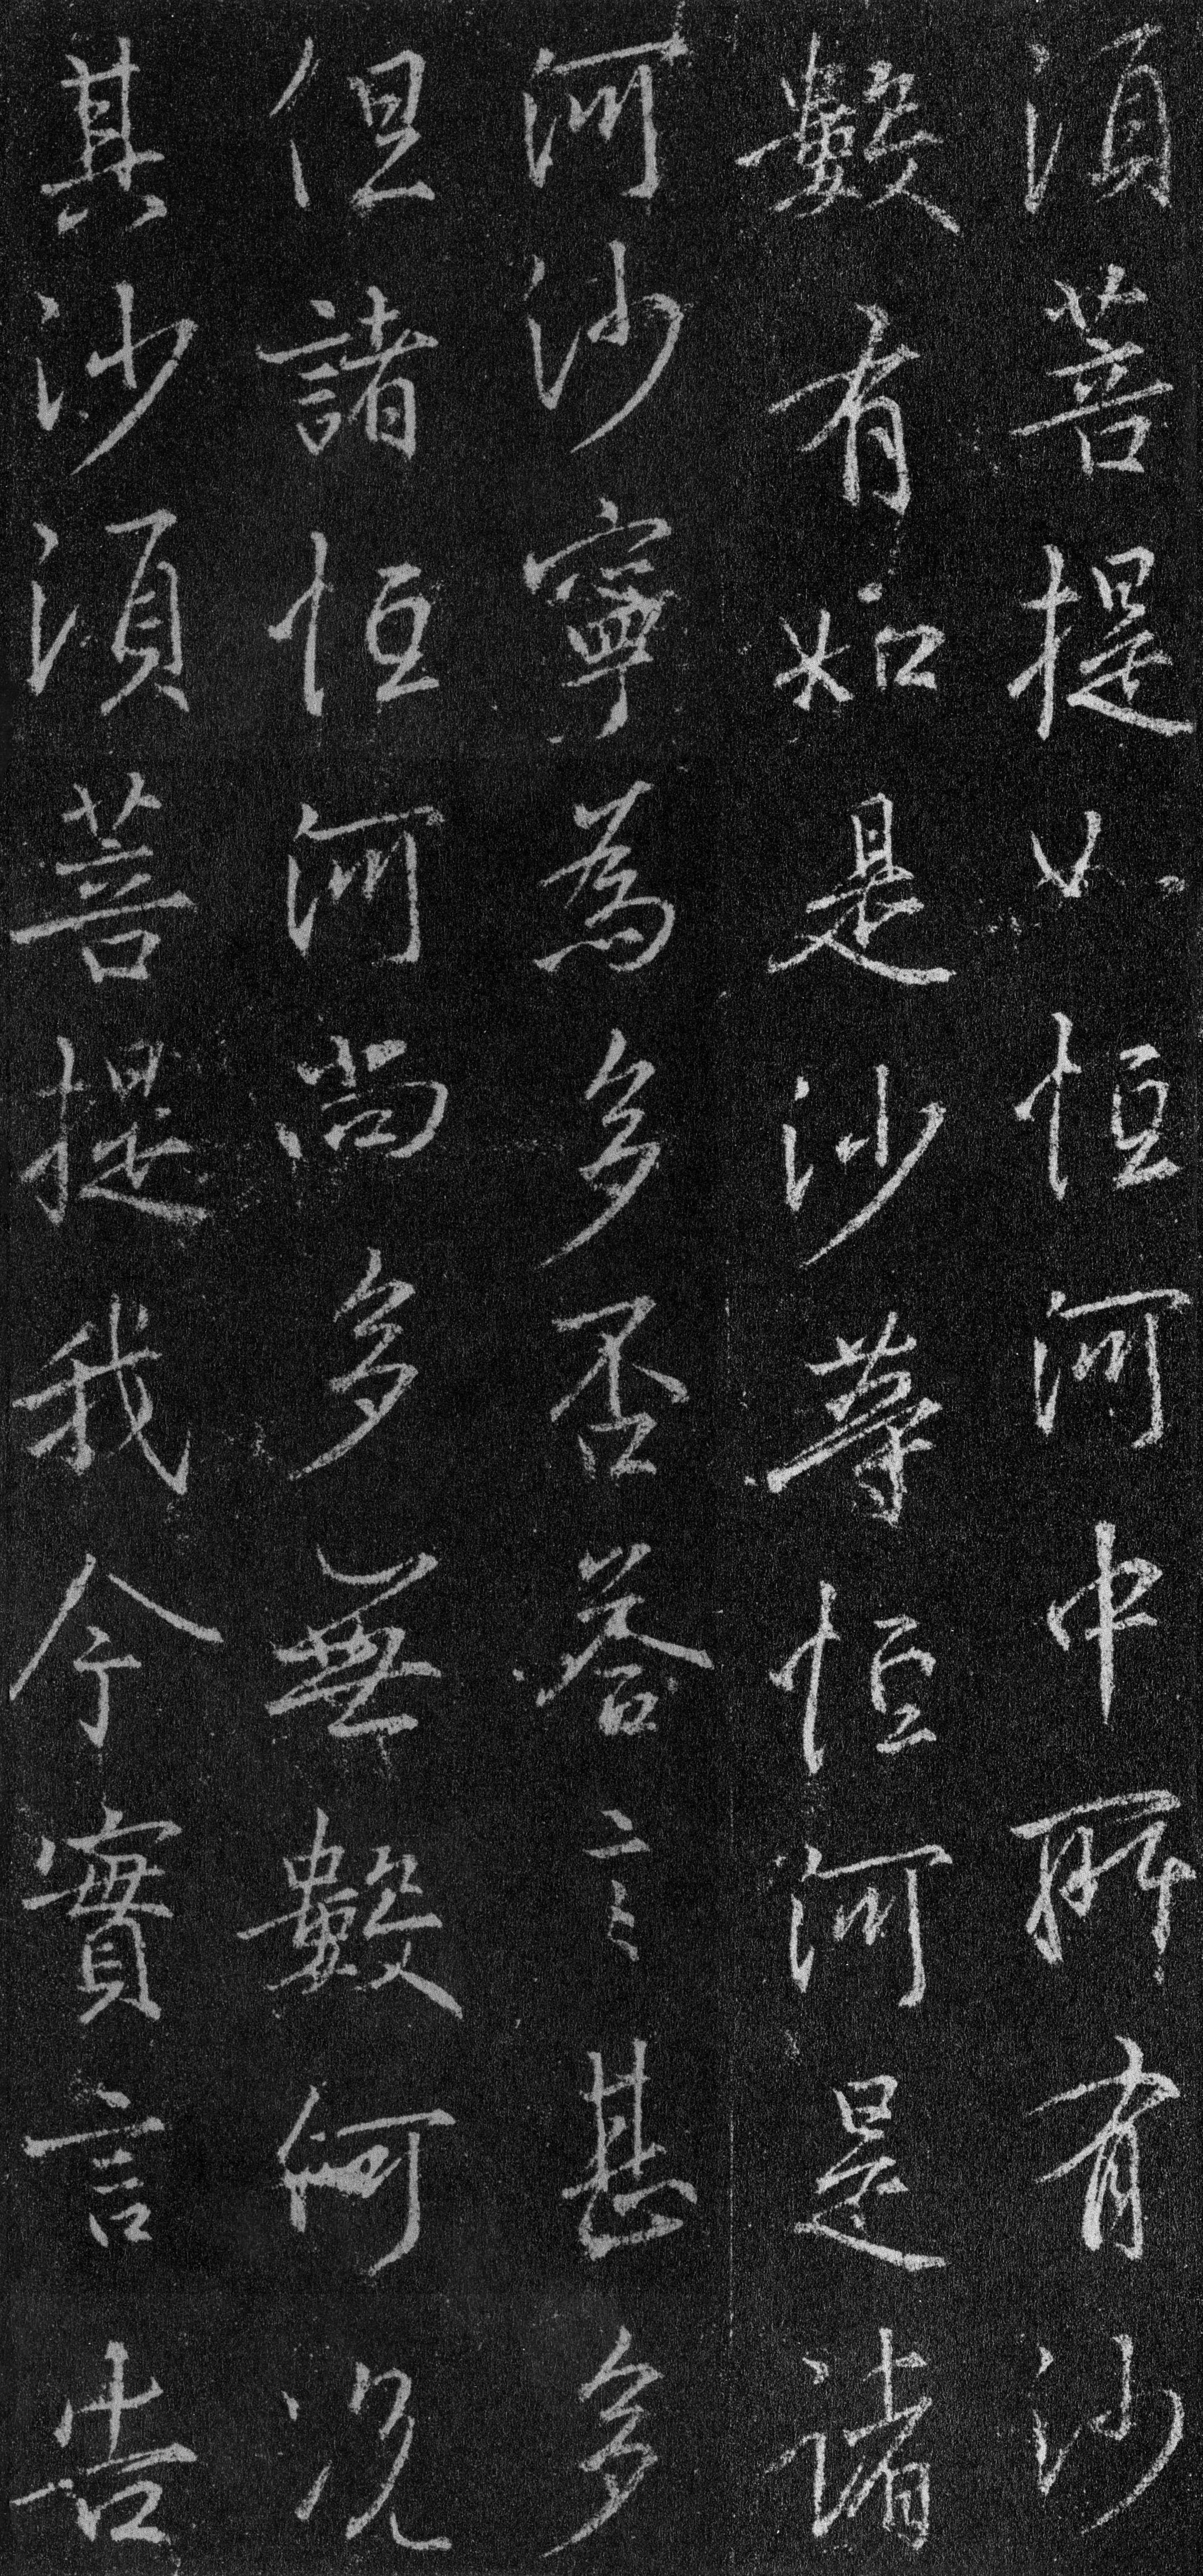 須菩提如恒河中所有沙
數有如是沙等恒河是諸
河沙寧為多否答言甚多
但諸恒河尚多無數何況
其沙須菩提我今實言告